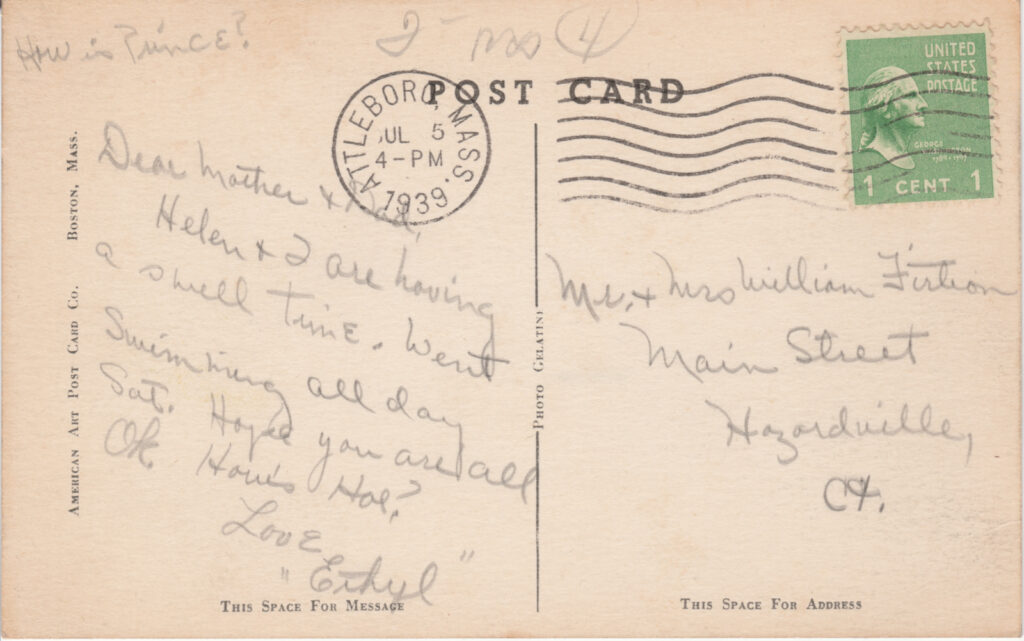 How is Prince?
POST CARD
ATTLEBORO, MASS.
JUL 5
4-PM
1939
UNITED
STATES
POSTAGE
GEORGE WASHINGTON
1789-1797
1 CENT 1
AMERICAN ART POST CARD CO. BOSTON, MASS.
Dear Mother & Dad,
Helen & I are having
a swell time. Went
Swimming all day
Sat. Hope you are all
Ok. How's Hal?
Love
"Ethyl"
PHOTO GELATINE
Mr. & Mrs William Firtion
Main Street
Hazardville,
Ct.
THIS SPACE FOR MESSAGE
THIS SPACE FOR ADDRESS